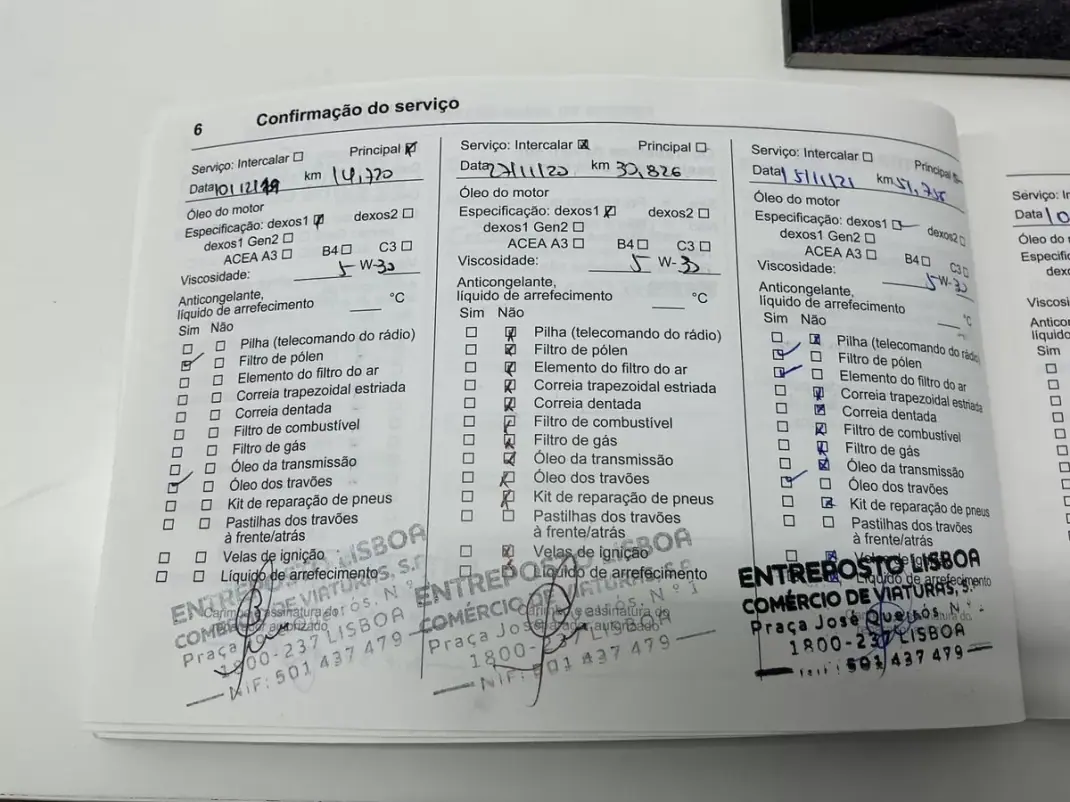 6 Confirmação do serviço
Serviço: Intercalar Principal
Data 10/12/19 km 14,720
Óleo do motor
Especificação: dexos1 dexos2
dexos1 Gen2
ACEA A3 B4 C3
Viscosidade: 5 W-30
Anticongelante,
líquido de arrefecimento °C
Sim Não
Pilha (telecomando do rádio)
Filtro de pólen
Elemento do filtro do ar
Correia trapezoidal estriada
Correia dentada
Filtro de combustível
Filtro de gás
Óleo da transmissão
Óleo dos travões
Kit de reparação de pneus
Pastilhas dos travões
à frente/atrás
Velas de ignição
Líquido de arrefecimento
ENTREPOSTO LISBOA
COMÉRCIO DE VIATURAS, S.A
Carimbo e assinatura do
Praça
1800-237 LISBOA
NIF: 501 437 479
Serviço: Intercalar Principal
Data 27/11/20 km 30,826
Óleo do motor
Especificação: dexos1 dexos2
dexos1 Gen2
ACEA A3 B4 C3
Viscosidade: 5 W-30
Anticongelante,
líquido de arrefecimento °C
Sim Não
Pilha (telecomando do rádio)
Filtro de pólen
Elemento do filtro do ar
Correia trapezoidal estriada
Correia dentada
Filtro de combustível
Filtro de gás
Óleo da transmissão
Óleo dos travões
Kit de reparação de pneus
Pastilhas dos travões
à frente/atrás
Velas de ignição
Líquido de arrefecimento
ENTREPOSTO LISBOA
COMÉRCIO DE VIATURAS,
Carimbo e assinatura do
reparador autorizado
Praça José Nº 1
1800-237 LISBOA
NIF: 501 437 479
Serviço: Intercalar Principal
Data 15/11/21 km 51,735
Óleo do motor
Especificação: dexos1 dexos2
dexos1 Gen2
ACEA A3 B4 C3
Viscosidade: 5 W-30
Anticongelante,
líquido de arrefecimento °C
Sim Não
Pilha (telecomando do rádio)
Filtro de pólen
Elemento do filtro do ar
Correia trapezoidal estriada
Correia dentada
Filtro de combustível
Filtro de gás
Óleo da transmissão
Óleo dos travões
Kit de reparação de pneus
Pastilhas dos travões
à frente/atrás
Velas de ignição
Líquido de arrefecimento
ENTREPOSTO LISBOA
COMÉRCIO DE VIATURAS,
Praça José Queirós, Nº
1800-237 LISBOA
501 437 479
Data
Sim